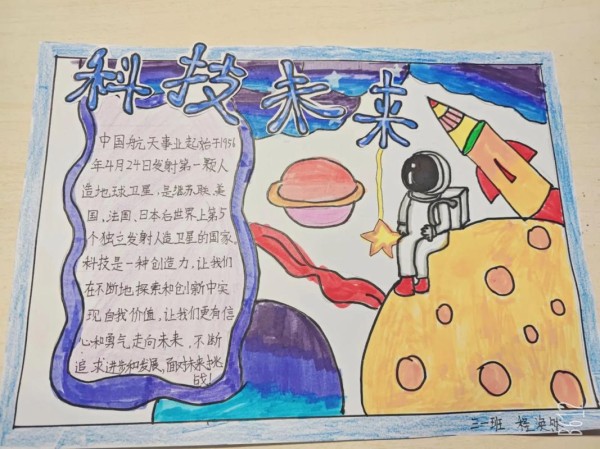 科技未来
中国航天事业起始于1956
年4月24日发射第一颗人
造地球卫星,是继苏联、美
国、法国、日本后世界上第5
个独立发射人造卫星的国家。
科技是一种创造力,让我们
在不断地探索和创新中实
现自我价值,让我们更有信
心和勇气走向未来,不断
追求进步和发展,面对未来挑
战!
三一班 程